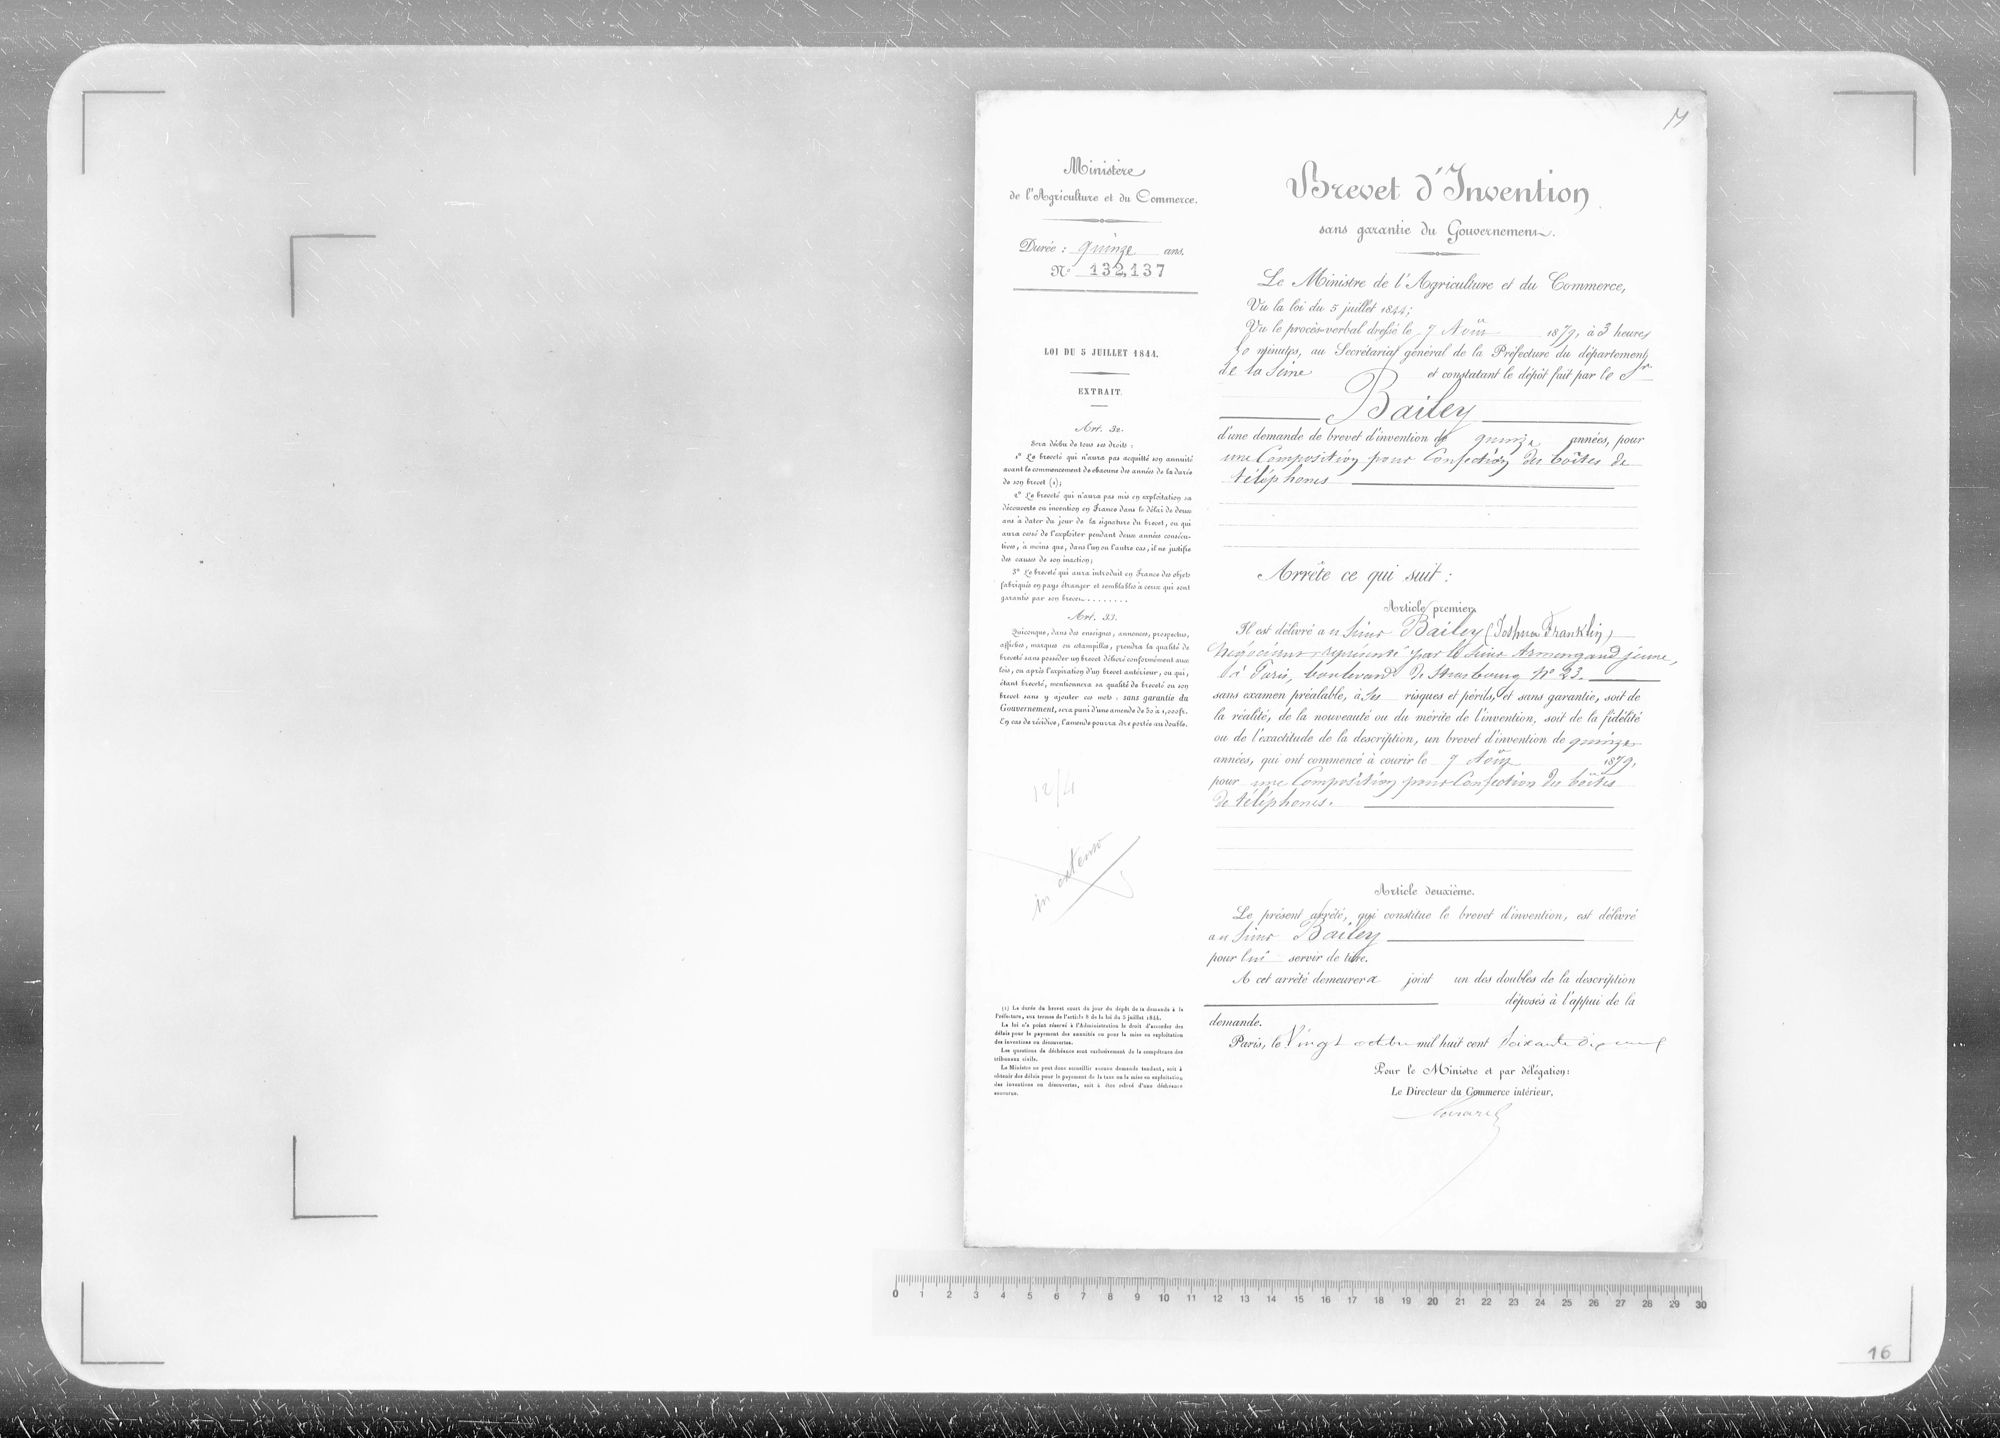 Ministère
de l'Agriculture et du Commerce.
Durée : quinze ans.
N° 132,137
LOI DU 5 JUILLET 1844.
EXTRAIT.
Art. 32.
Sera déchu de tous ses droits :
1° Le breveté qui n'aura pas acquitté son annuité
avant le commencement de chacune des années de la durée
de son brevet (1);
2° Le breveté qui n'aura pas mis en exploitation sa
découverte ou invention en France dans le délai de deux
ans à dater du jour de la signature du brevet, ou qui
aura cessé de l'exploiter pendant deux années consécu-
tives, à moins que, dans l'un ou l'autre cas, il ne justifie
des causes de son inaction;
3° Le breveté qui aura introduit en France des objets
fabriqués en pays étranger et semblables à ceux qui sont
garantis par son brevet........
Art. 33.
Quiconque, dans des enseignes, annonces, prospectus,
affiches, marques ou estampilles, prendra la qualité de
breveté sans posséder un brevet délivré conformément aux
lois, ou après l'expiration d'un brevet antérieur, ou qui,
étant breveté, mentionnera sa qualité de breveté ou son
brevet sans y ajouter ces mots : sans garantie du
Gouvernement, sera puni d'une amende de 50 à 1,000 fr.
En cas de récidive, l'amende pourra être portée au double.
12/4
in extenso
(1) La durée du brevet court du jour du dépôt de la demande à la
Préfecture, aux termes de l'article 8 de la loi du 5 juillet 1844.
La loi n'a point réservé à l'Administration le droit d'accorder des
délais pour le payement des annuités ou pour la mise en exploitation
des inventions ou découvertes.
Les questions de déchéance sont exclusivement de la compétence des
tribunaux civils.
Le Ministre ne peut donc accueillir aucune demande tendant, soit à
obtenir des délais pour le payement de la taxe ou la mise en exploitation
des inventions ou découvertes, soit à être relevé d'une déchéance
encourue.
Brevet d'Invention
sans garantie du Gouvernement.
Le Ministre de l'Agriculture et du Commerce,
Vu la loi du 5 juillet 1844;
Vu le procès-verbal dressé le 7 Août 1879, à 3 heures
50 minutes, au Secrétariat général de la Préfecture du département
de la Seine et constatant le dépôt fait par le Sr
Bailey
d'une demande de brevet d'invention de quinze années, pour
une Composition pour Confection des boîtes de
téléphones
Arrête ce qui suit :
Article premier.
Il est délivré au Sieur Bailey (Joshua Franklin)
Négociant représenté par le Sieur Armengaud jeune,
à Paris, boulevard de Strasbourg N° 23.
sans examen préalable, à ses risques et périls, et sans garantie, soit de
la réalité, de la nouveauté ou du mérite de l'invention, soit de la fidélité
ou de l'exactitude de la description, un brevet d'invention de quinze
années, qui ont commencé à courir le 7 Août 1879,
pour une Composition pour Confection des boîtes
de téléphones.
Article deuxième.
Le présent arrêté, qui constitue le brevet d'invention, est délivré
au Sieur Bailey
pour lui servir de titre.
A cet arrêté demeurera joint un des doubles de la description
déposés à l'appui de la
demande.
Paris, le Vingt octobre mil huit cent soixante dix neuf
Pour le Ministre et par délégation:
Le Directeur du Commerce intérieur,
0 1 2 3 4 5 6 7 8 9 10 11 12 13 14 15 16 17 18 19 20 21 22 23 24 25 26 27 28 29 30
16